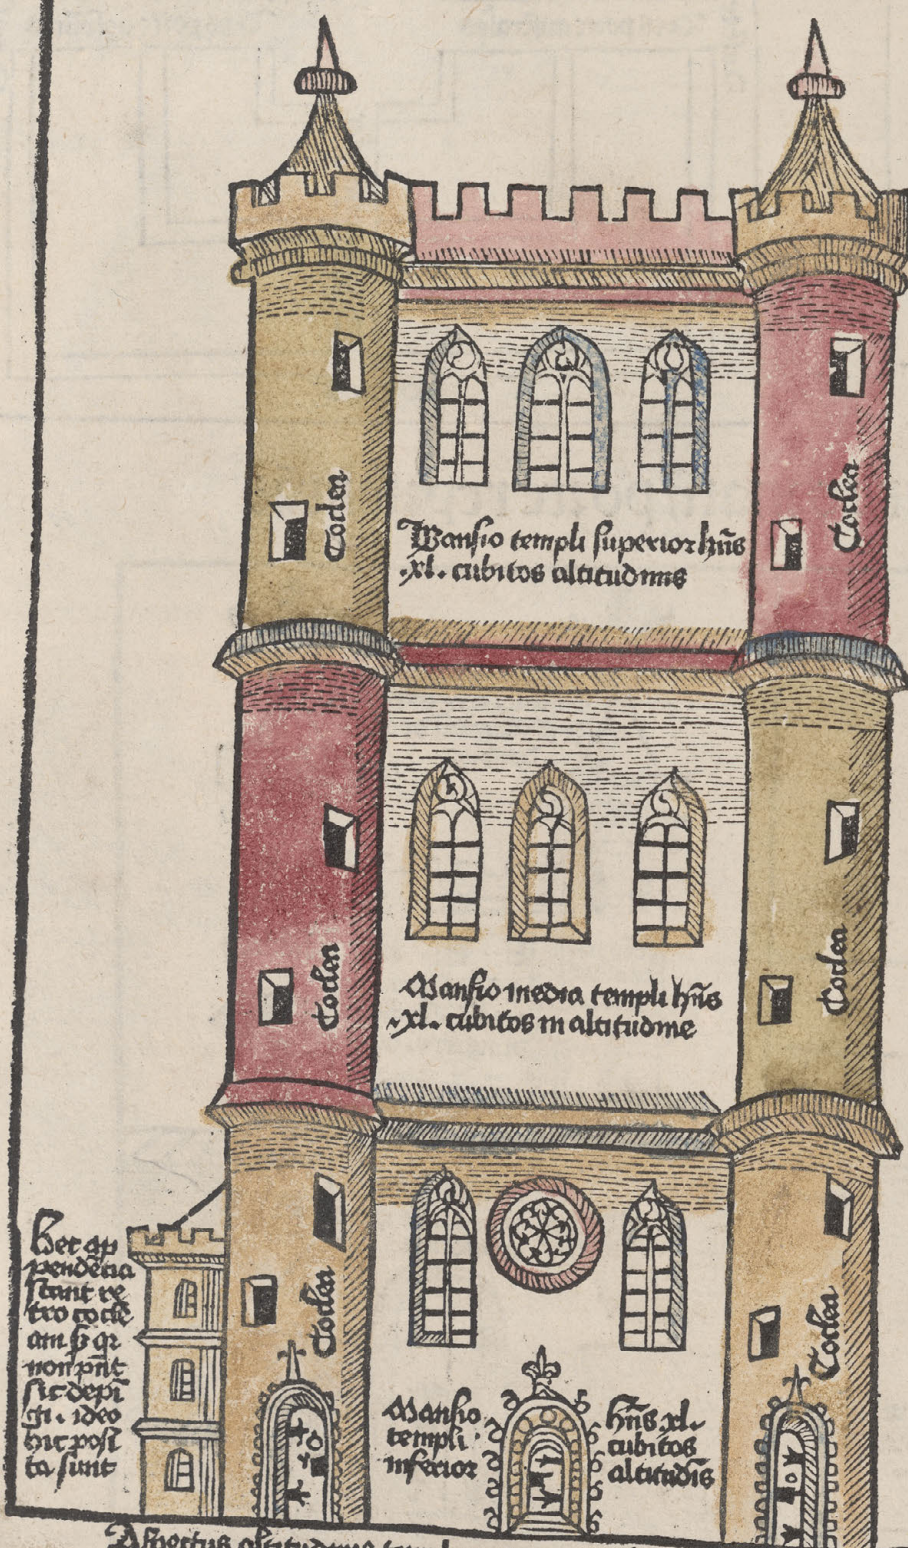 Coclea
Coclea
Mansio templi superior hñs
.xl. cubitos altitudinis
Coclea
Coclea
Mansio media templi hñs
.xl. cubitos in altitudine
Coclea
Coclea
Hec ap
pendēcia
stant re
tro cocle
am sꝫ qꝛ
non pñt
sic depī
gi. ideo
hic posi
ta sunt
Mansio
templi
inferior
hñs xl.
cubitos
altitudīs
Aspectus altitudinis